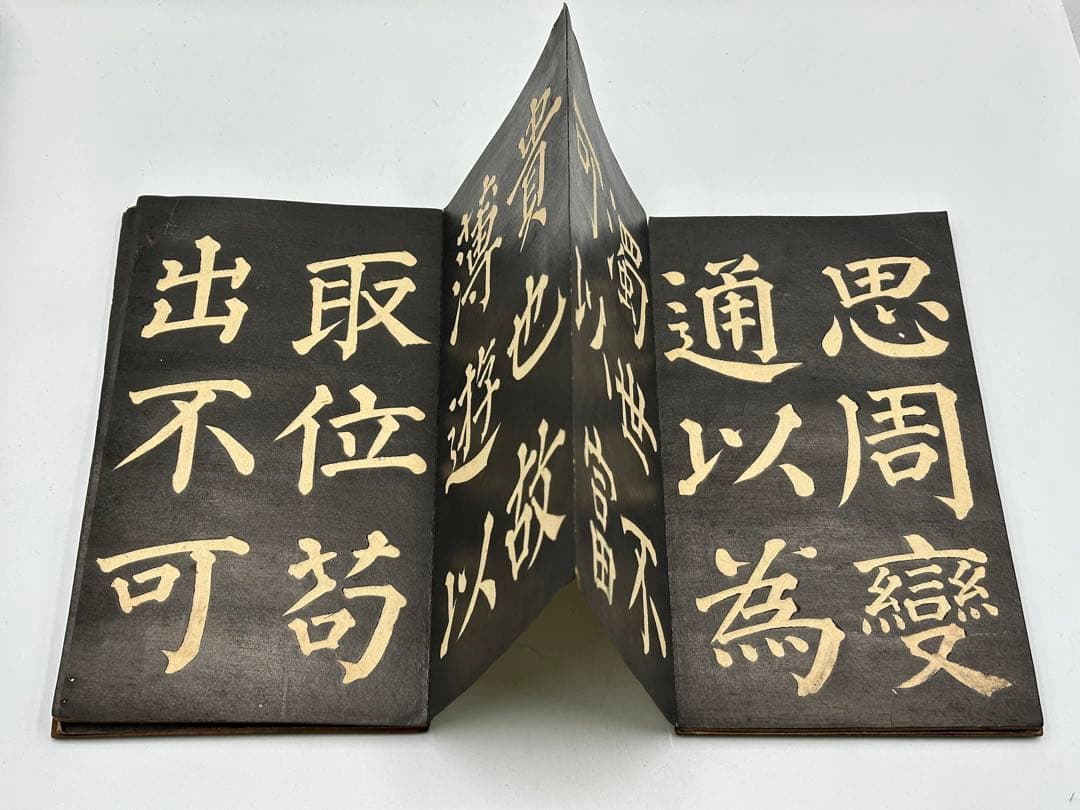 思周變
通以為
濁世不
可以富
貴也故
薄遊以
取位苟
出不可